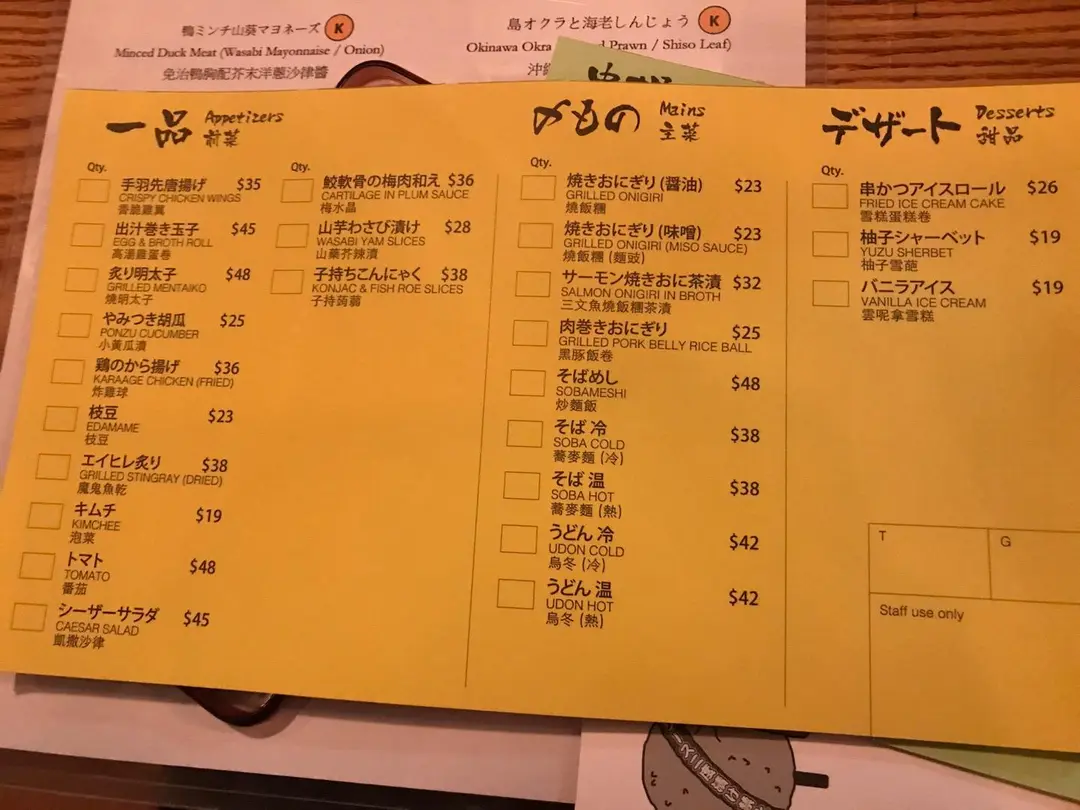 鴨ミンチ山葵マヨネーズ K
Minced Duck Meat (Wasabi Mayonnaise / Onion)
免治鴨胸配芥末洋蔥沙律醬
島オクラと海老しんじょう K
Okinawa Okra Prawn / Shiso Leaf)
一品 Appetizers
前菜
Qty.
手羽先唐揚げ $35
CRISPY CHICKEN WINGS
香脆雞翼
出汁巻き玉子 $45
EGG & BROTH ROLL
高湯雞蛋卷
炙り明太子 $48
GRILLED MENTAIKO
燒明太子
やみつき胡瓜 $25
PONZU CUCUMBER
小黃瓜漬
鶏のから揚げ $36
KARAAGE CHICKEN (FRIED)
炸雞球
枝豆 $23
EDAMAME
枝豆
エイヒレ炙り $38
GRILLED STINGRAY (DRIED)
魔鬼魚乾
キムチ $19
KIMCHEE
泡菜
トマト $48
TOMATO
番茄
シーザーサラダ $45
CAESAR SALAD
凱撒沙律
Qty.
鮫軟骨の梅肉和え $36
CARTILAGE IN PLUM SAUCE
梅水晶
山芋わさび漬け $28
WASABI YAM SLICES
山藥芥辣漬
子持ちこんにゃく $38
KONJAC & FISH ROE SLICES
子持蒟蒻
〆もの Mains
主菜
Qty.
焼きおにぎり (醤油) $23
GRILLED ONIGIRI
燒飯糰
焼きおにぎり (味噌) $23
GRILLED ONIGIRI (MISO SAUCE)
燒飯糰 (麵豉)
サーモン焼きおに茶漬 $32
SALMON ONIGIRI IN BROTH
三文魚燒飯糰茶漬
肉巻きおにぎり $25
GRILLED PORK BELLY RICE BALL
黑豚飯卷
そばめし $48
SOBAMESHI
炒麵飯
そば 冷 $38
SOBA COLD
蕎麥麵 (冷)
そば 温 $38
SOBA HOT
蕎麥麵 (熱)
うどん 冷 $42
UDON COLD
烏冬 (冷)
うどん 温 $42
UDON HOT
烏冬 (熱)
デザート Desserts
甜品
Qty.
串かつアイスロール $26
FRIED ICE CREAM CAKE
雪糕蛋糕卷
柚子シャーベット $19
YUZU SHERBET
柚子雪葩
バニラアイス $19
VANILLA ICE CREAM
雲呢拿雪糕
T
G
Staff use only